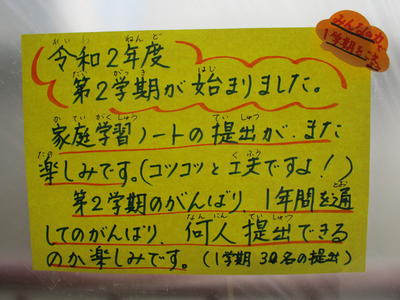 みんなの力で
1学期を
令和2年度
第2学期が始まりました。
家庭学習ノートの提出が、また
楽しみです。(コツコツと工夫ですよ!)
第2学期のがんばり、1年間を通
してのがんばり、何人提出できる
のか楽しみです。(1学期34名の提出)